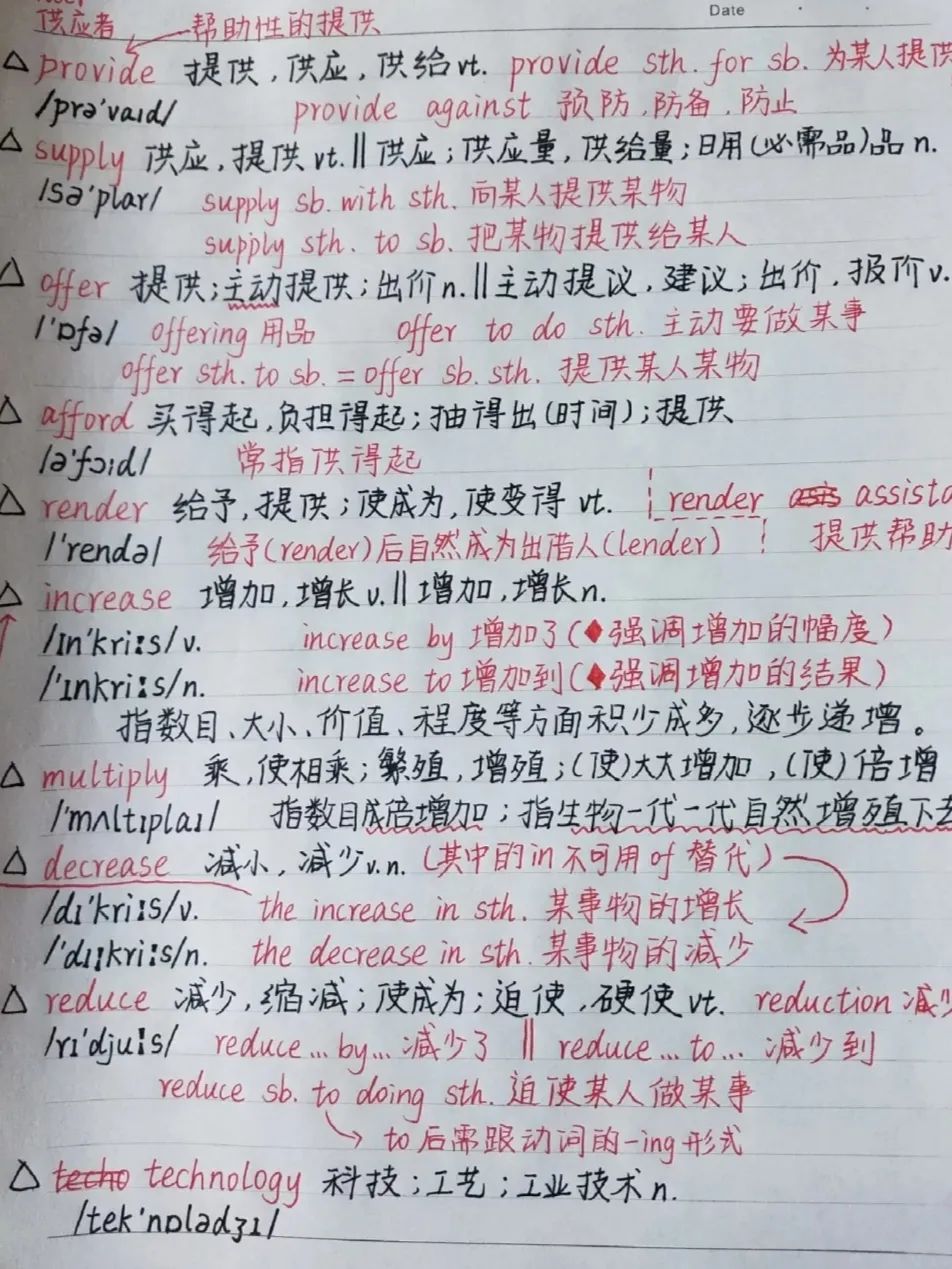 Date
供应者 帮助性的提供
△ provide 提供,供应,供给vt. provide sth. for sb. 为某人提供
/prə'vaɪd/ provide against 预防,防备,防止
△ supply 供应,提供vt.‖供应;供应量,供给量;日用(必需品)品n.
/sə'plaɪ/ supply sb. with sth. 向某人提供某物
supply sth. to sb. 把某物提供给某人
△ offer 提供;主动提供;出价n.‖主动提议,建议;出价,报价v.
/'ɒfə/ offering 用品 offer to do sth. 主动要做某事
offer sth. to sb. = offer sb. sth. 提供某人某物
△ afford 买得起,负担得起;抽得出(时间);提供
/ə'fɔːd/ 常指供得起
△ render 给予,提供;使成为,使变得 vt. render assista
/'rendə/ 给予(render)后自然成为出借人(lender) 提供帮助
△ increase 增加,增长v.‖增加,增长n.
/ɪn'kriːs/v. increase by 增加了(♦强调增加的幅度)
/'ɪnkriːs/n. increase to 增加到(♦强调增加的结果)
指数目、大小、价值、程度等方面积少成多,逐步递增。
△ multiply 乘,使相乘;繁殖,增殖;(使)大大增加,(使)倍增
/'mʌltɪplaɪ/ 指数目成倍增加;指生物一代一代自然增殖下去
△ decrease 减小,减少v.n.(其中的in不可用of替代)
/dɪ'kriːs/v. the increase in sth. 某事物的增长
/'diːkriːs/n. the decrease in sth. 某事物的减少
△ reduce 减少,缩减;使成为;迫使,硬使vt. reduction 减少
/rɪ'djuːs/ reduce...by...减少了 ‖ reduce...to... 减少到
reduce sb. to doing sth. 迫使某人做某事
to后需跟动词的-ing形式
△ techo technology 科技;工艺;工业技术n.
/tek'nɒlədʒɪ/